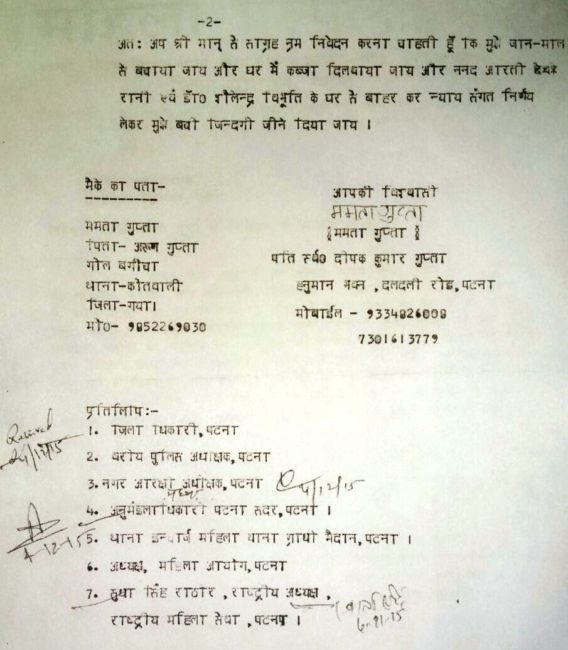 -2-
अत: अप श्री मान् से साग्रह नम्र निवेदन करना चाहती हूँ कि मुझे जान-माल
से बचाया जाय और घर में कब्जा दिलवाया जाय और ननद आरती
रानी एवं डॉ0 शैलेन्द्र विभूति के घर से बाहर कर न्याय संगत निर्णय
लेकर मुझे बची जिन्दगी जीने दिया जाय ।
मैके का पता-
ममता गुप्ता
पिता- अरूण गुप्ता
गोल बगीचा
थाना-कोतवाली
जिला-गया।
मो0- 9852269030
आपकी विश्वासी
ममता गुप्ता
[ममता गुप्ता]
पति स्व0 दीपक कुमार गुप्ता
हनुमान भवन ,दलदली रोड,पटना
मोबाईल - 9334826008
7301613779
प्रतिलिपि:-
1. जिला धिकारी,पटना
2. वरीय पुलिस अधीक्षक,पटना
3.नगर आरक्षी अधीक्षक,पटना
4. अनुमंडलाधिकारी पटना सदर,पटना ।
5. थाना इन्चार्ज महिला थाना गाधी मैदान,पटना ।
6. अध्यक्ष, महिला आयोग,पटना
7. सुधा सिंह राठौर ,राष्ट्रीय अध्यक्ष,
राष्ट्रीय महिला सेवा ,पटना ।
Received
24/12/15
4/12/15
4-12-15